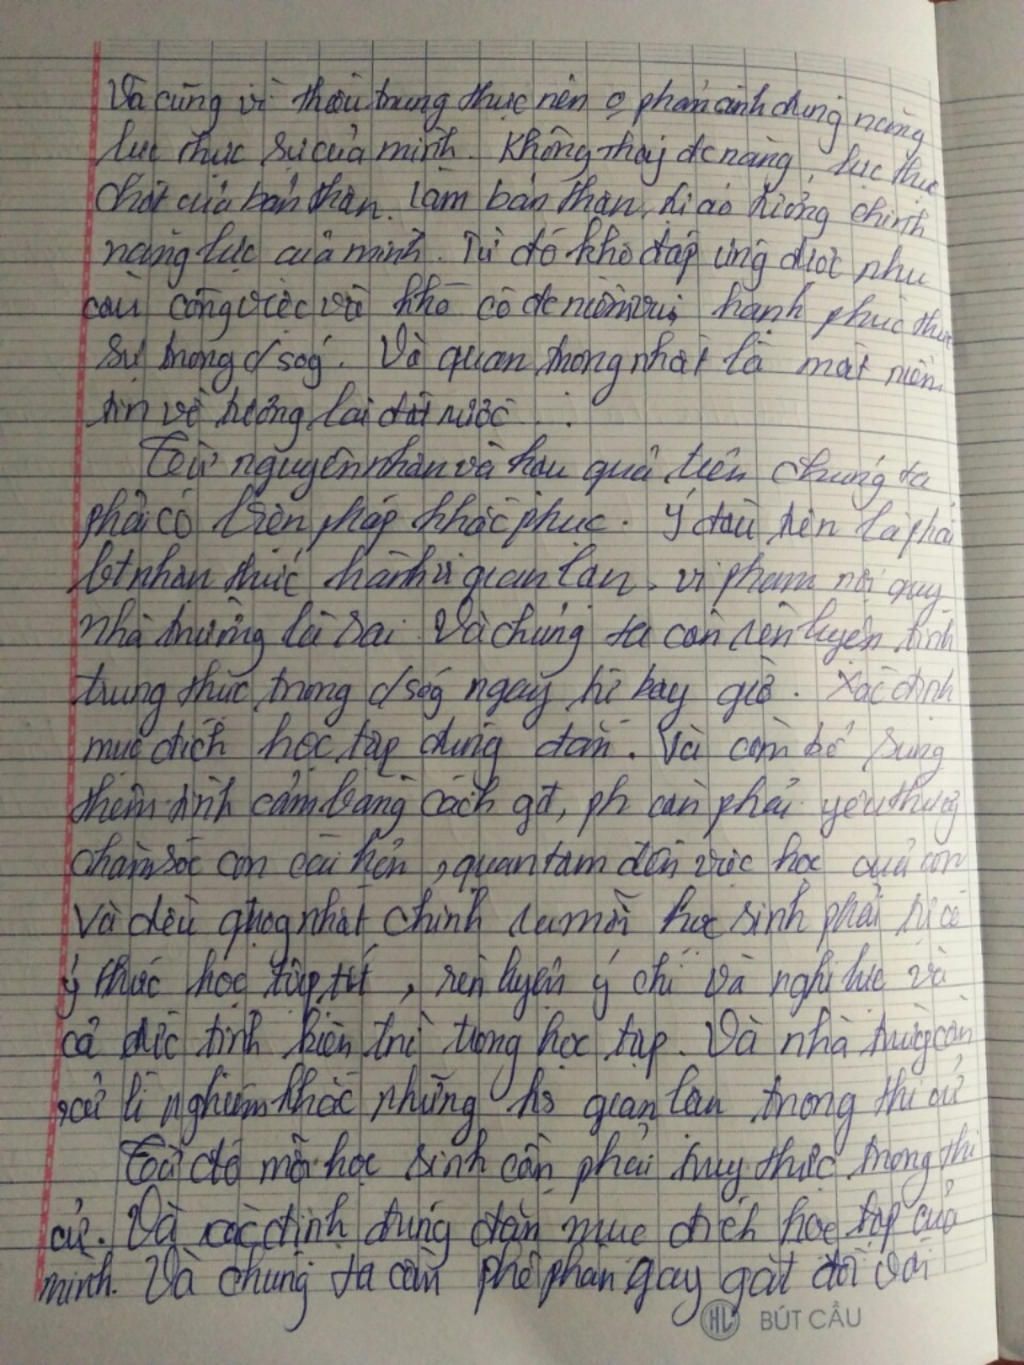 Và cũng vì thiếu trung thực nên o phản ánh đúng năng
lực thực sự của mình. Không thấy đc năng lực thực
chất của bản thân. Làm bản thân bị ảo tưởng chính
năng lực của mình. Từ đó khó đáp ứng được nhu
cầu công việc và khó có đc niềm vui, hạnh phúc thực
sự trong đ/sog'. Và quan trọng nhất là mất niềm
tin về tương lai đất nước ...
Từ nguyên nhân và hậu quả trên chúng ta
phải có biện pháp khắc phục. Ý đầu tiên là phải
nhận thức hành vi gian lận, vi phạm nội quy
nhà trường là sai. Và chúng ta cần rèn luyện tính
trung thực trong đ/sog' ngay từ bây giờ. Xác định
mục đích học tập đúng đắn. Và cần bổ sung
thêm tình cảm bằng cách gđ, ph cần phải yêu thương
chăm sóc con cái hơn, quan tâm đến việc học của con
Và điều nhất chính là mỗi học sinh phải tự có
ý thức học tập tốt, rèn luyện ý chí và nghị lực và
cả đức tính kiên trì trong học tập. Và nhà trường cần
xử lí nghiêm khắc những hs gian lận trong thi cử
Từ đó mỗi học sinh cần phải trung thực trong thi
cử. Và xác định đúng đắn mục đích học tập của
mình. Và chúng ta cần phê phán gay gắt đối với
HL BÚT CẦU